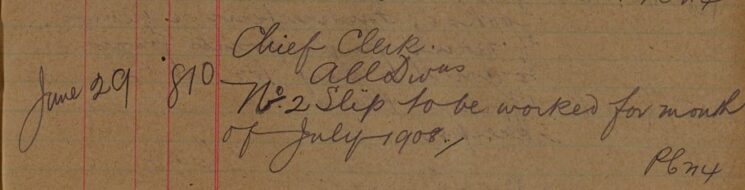 Chief Clerk.
All Divns
June 29 810 No. 2 Slip to be worked for month
of July 1908.